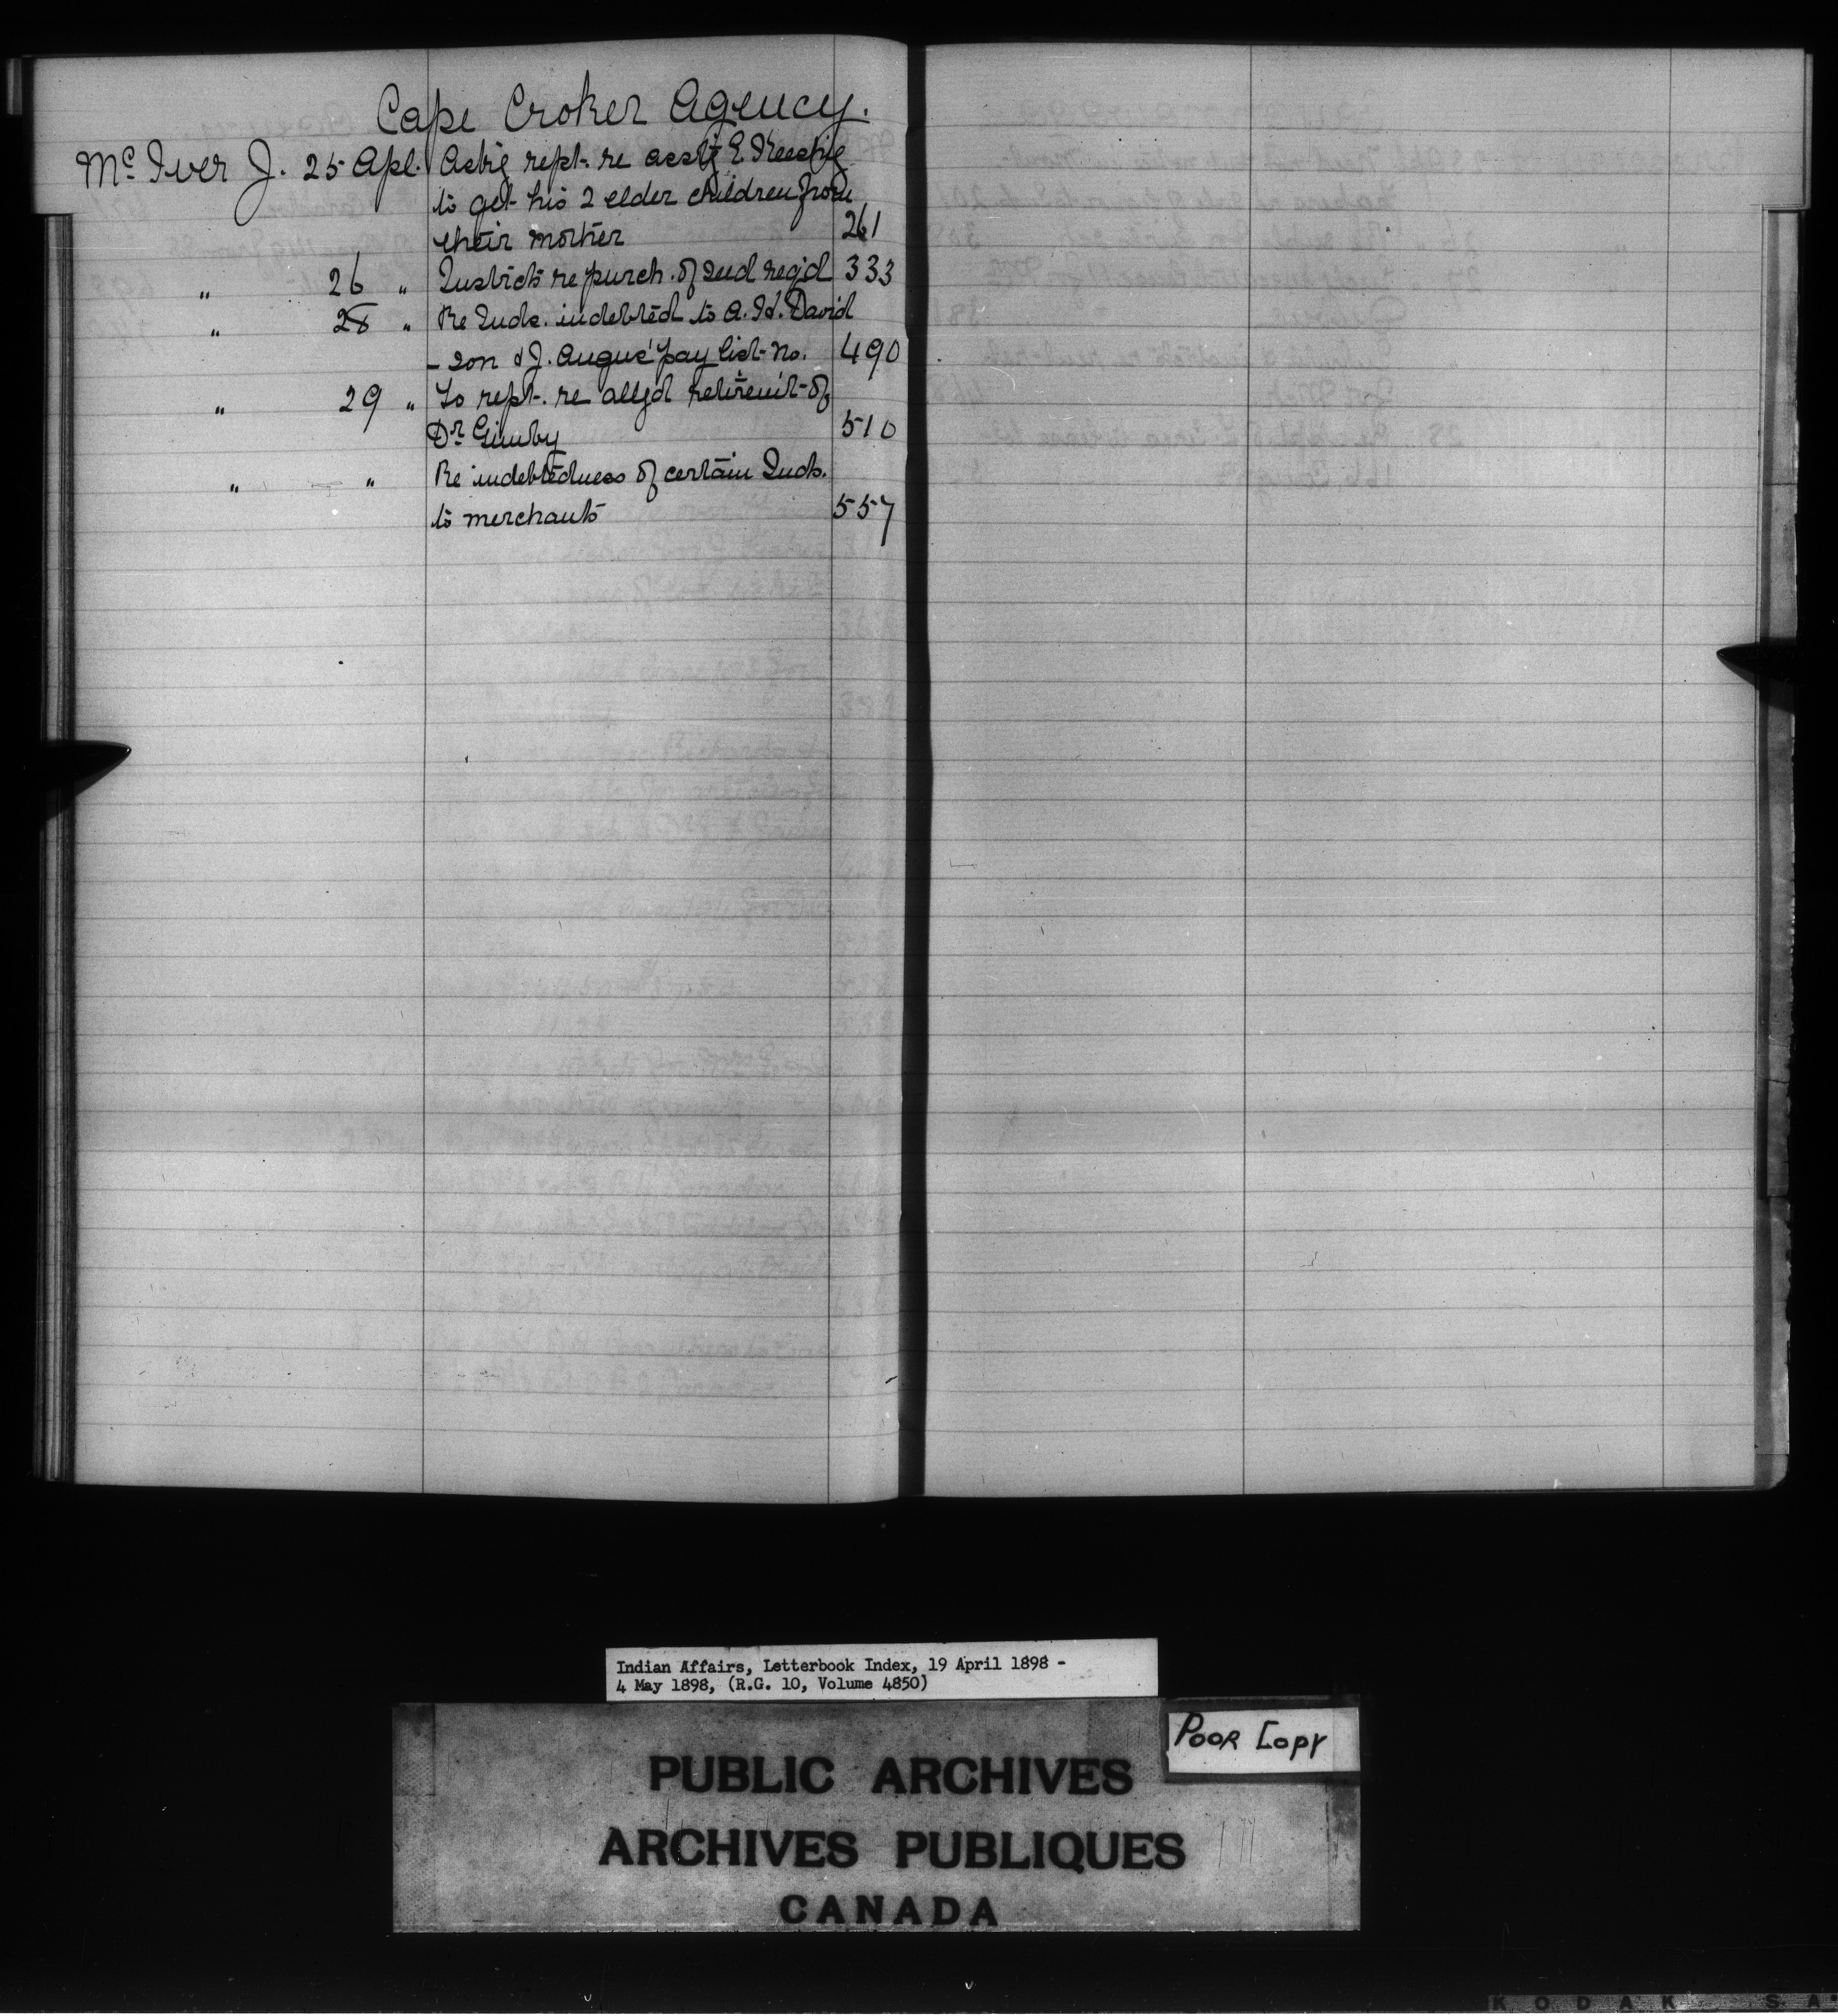 Cape Croker Agency.
Mc Iver J. 25 Apl. Askg rept. re asstg E Keeshig
to get his 2 elder children from
their mother 261
" 26 " Instrcts re purch. of seed reqd 333
" 28 " Re Inds. indebted to A. H. David
- son & J. Angus' pay list no. 490
" 29 " To rept. re allgd retiremt of
Dr Gimby 510
" " Re indebtedness of certain Inds.
to merchants 557
Indian Affairs, Letterbook Index, 19 April 1898 -
4 May 1898, (R.G. 10, Volume 4850)
POOR COPY
PUBLIC ARCHIVES
ARCHIVES PUBLIQUES
CANADA
KODAK SA